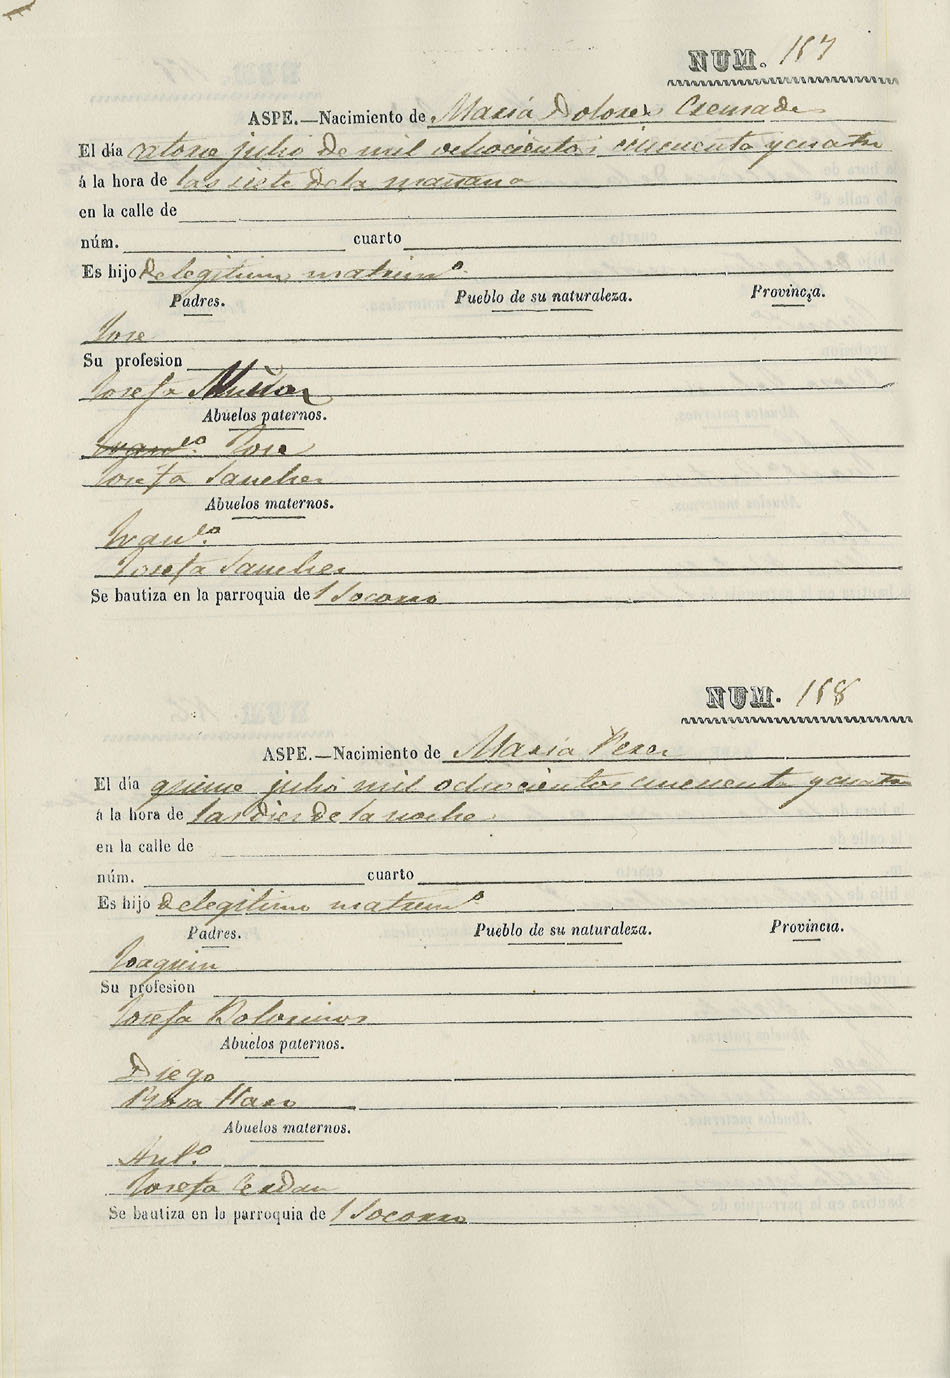 NUM. 157
ASPE.—Nacimiento de Maria Dolores Cremades
El día catorce julio de mil ochocientos cincuenta y cuatro
á la hora de las siete de la mañana
en la calle de
núm. cuarto
Es hijo de legitimo matrimº
Padres. Pueblo de su naturaleza. Provincia.
Jose
Su profesion
Josefa Muñoz
Abuelos paternos.
Jose
Josefa Sanchez
Abuelos maternos.
Franco
Josefa Sanchez
Se bautiza en la parroquia de l Socorro
NUM. 158
ASPE.—Nacimiento de Maria Perez
El día quince julio mil ochocientos cincuenta y cuatro
á la hora de las diez de la noche
en la calle de
núm. cuarto
Es hijo de legitimo matrimº
Padres. Pueblo de su naturaleza. Provincia.
Joaquin
Su profesion
Josefa Bolorinos
Abuelos paternos.
Diego
Rosa Haro
Abuelos maternos.
Antº
Josefa Cerdan
Se bautiza en la parroquia de l Socorro